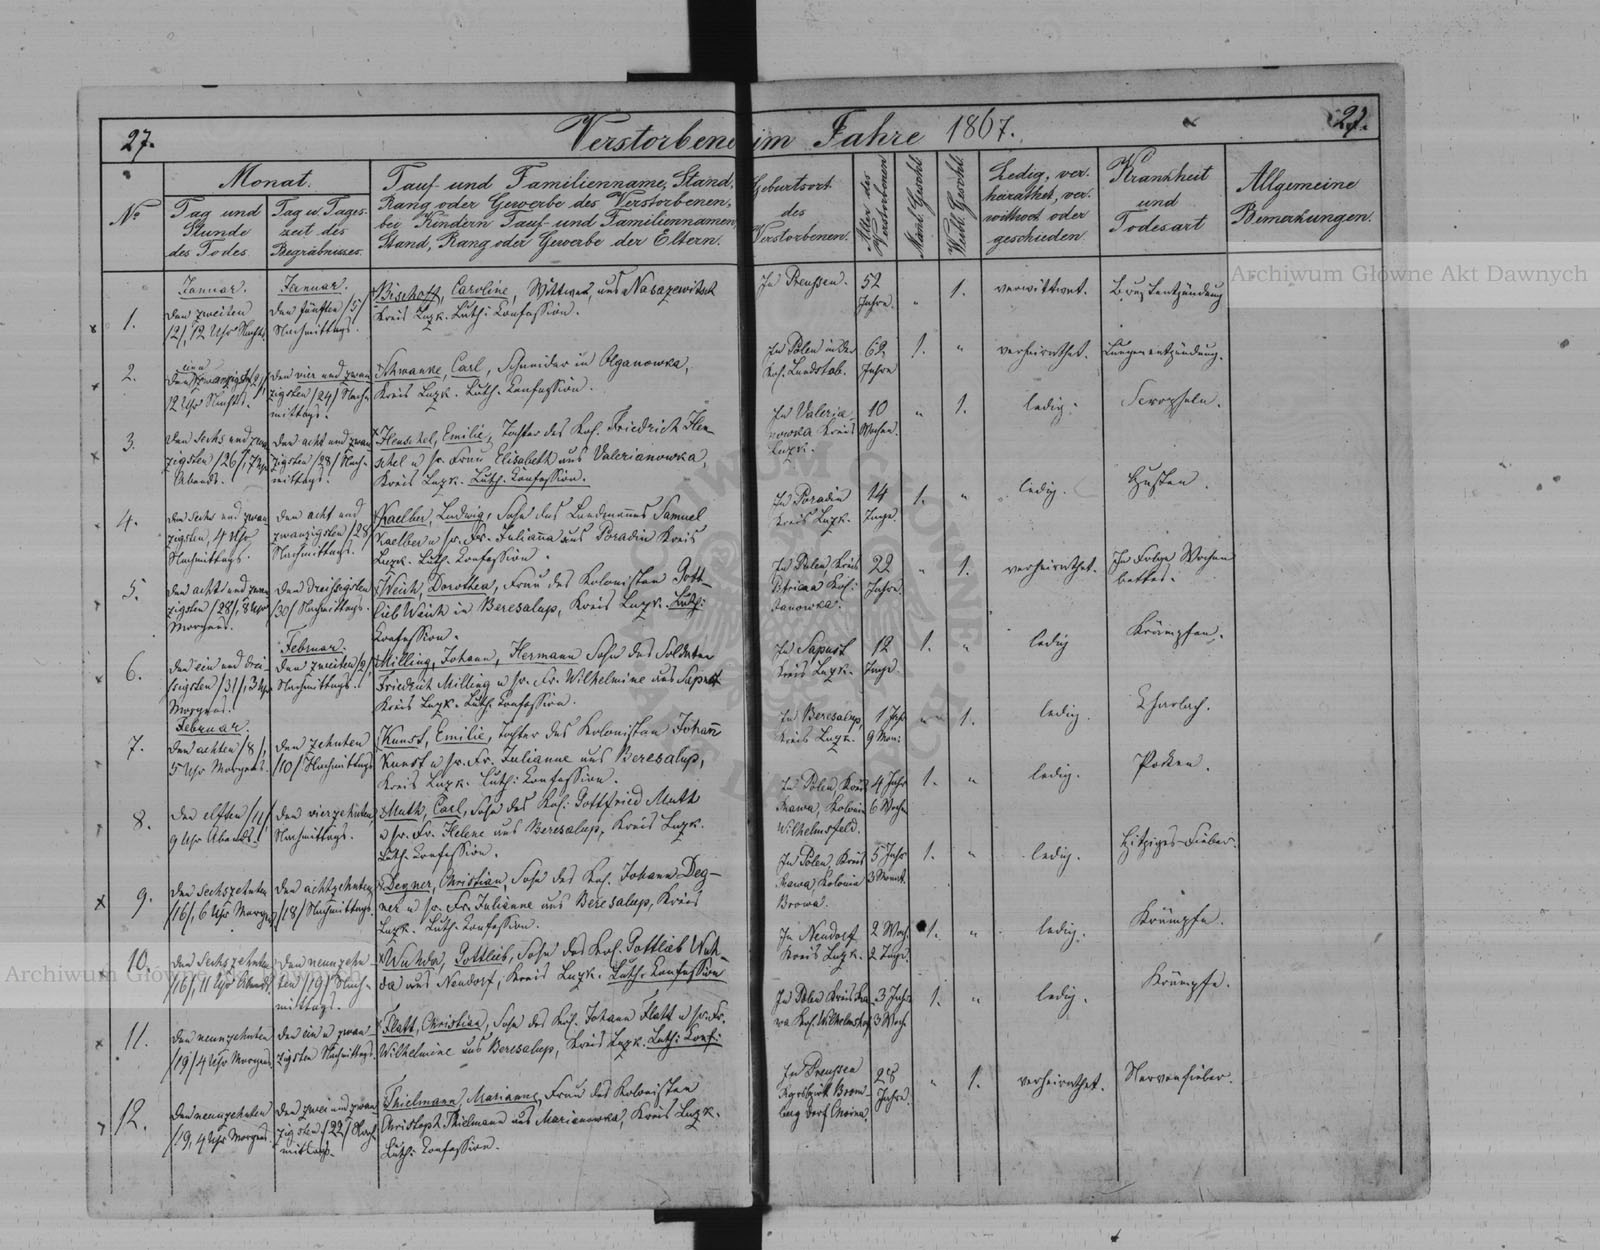 27.
Verstorbene im Jahre 1867.
27.
No
Monat.
Tag und
Stunde
des Todes.
Tag u. Tages-
zeit des
Begräbnisses.
Tauf- und Familienname, Stand,
Rang oder Gewerbe des Verstorbenen,
bei Kindern Tauf- und Familiennamen,
Stand, Rang oder Gewerbe der Eltern.
Geburtsort
des
Verstorbenen.
Alter des
Verstorbenen
Mänl. Geschl.
Weibl. Geschl.
Ledig, ver-
heirathet, ver-
wittwet oder
geschieden
Krankheit
und
Todesart
Allgemeine
Bemerkungen.
1.
Januar.
Den zweiten
/2/, 12 Uhr Nachts.
Januar.
Den fünften /5/
Nachmittags.
Bischoff, Caroline, Wittwe, aus
Kreis Luzk. Luth: Confession.
In Preußen.
52
Jahre.
"
1.
verwittwet.
Brustentzündung
2.
Den ein
zwanzigsten
12 Uhr Nachts.
Den vier und zwan-
zigsten /24/ Nach-
mittags.
Schwanke, Carl, Schneider in Olganowka,
Kreis Luzk. Luth. Confession.
In Polen in der
Kol.
62
Jahre
1.
"
verheirathet.
Lungenentzündung.
3.
Den sechs und zwan-
zigsten /26/, 7 Uhr
Abends.
Den acht und zwan-
zigsten /28/ Nach-
mittags.
Henschel, Emilie, Tochter des Kol. Friedrich Hen-
schel u sr. Frau Elisabeth aus Valerianowka,
Kreis Luzk. Luth. Confession.
In Valeria-
nowka Kreis
Luzk.
10
Wochen.
"
1.
ledig.
Scropheln.
4.
Den sechs und zwan-
zigsten, 4 Uhr
Nachmittags.
Den acht und
zwanzigsten /28/
Nachmittags.
Kaelber, Ludwig, Sohn des Landmannes Samuel
Kaelber u sr. Fr. Julianna aus Poradin Kreis
Luzk. Luth. Confession.
In Poradin
Kreis Luzk.
14
Tage.
1.
"
ledig.
Husten.
5.
Den acht und zwan-
zigsten /28/, 8 Uhr
Morgens.
Den dreißigsten
/30/ Nachmittags.
Weich, Dorothea, Frau des Kolonisten Gott-
lieb Weich in Beresalup, Kreis Luzk. Luth:
Confession.
In Polen, Kreis
Kol:
22
Jahre.
"
1.
verheirathet.
In Folge Wochen
bettes.
6.
Den ein und drei-
ßigsten /31/, 3 Uhr
Morgens.
Februar.
Den zweiten /2/,
Nachmittags.
Milling, Johann, Hermann Sohn des Soldaten
Friedrich Milling u sr. Fr. Wilhelmine aus
Kreis Luzk. Luth. Confession.
In Sapust
Kreis Luzk.
12
Tage.
1.
"
ledig
Krämpfen.
7.
Februar.
Den achten /8/,
5 Uhr Morgens.
Den zehnten
/10/ Nachmittags
Kunst, Emilie, Tochter des Kolonisten Johann
Kunst u sr. Fr. Julianne aus Beresalup,
Kreis Luzk. Luth: Confession.
In Beresalup,
Kreis Luzk.
1 Jahr
9 Mon:
"
1.
ledig.
Scharlach.
8.
Den elften /11/
9 Uhr Abends.
Den vierzehnten
Nachmittags.
Muth, Carl, Sohn des Kol: Gottfried Muth
u sr. Fr. Helene aus Beresalup, Kreis Luzk.
Luth. Confession.
In Polen, Kreis
Rawa, Kolonie
Wilhelmsfeld.
4 Jahr
6 Woche
1.
"
ledig.
Pocken.
9.
Den sechszehnten
/16/, 6 Uhr Morgens
Den achtzehnten
/18/ Nachmittags.
Degner, Christian, Sohn des Kol. Johann Deg-
ner u sr. Fr. Julianne aus Beresalup, Kreis
Luzk. Luth. Confession.
In Polen, Kreis
Rawa, Kolonie
5 Jahr
3 Monat.
1.
"
ledig.
Hitziges Fieber.
10.
Den sechszehnten
/16/, 11 Uhr Abends.
Den neunzehn-
ten /19/ Nach-
mittags.
Gottlieb, Sohn des Kol. Gottlieb
aus Neudorf, Kreis Luzk. Luth. Confession
In Neudorf
Kreis Luzk.
2 Woch.
2 Tage.
1.
"
ledig.
Krämpfe.
11.
Den neunzehnten
/19/ 4 Uhr Morgens.
Den ein u zwan-
zigsten Nachmittags.
Flatt, Christian, Sohn des Kol. Johann Flatt u sr. Fr.
Wilhelmine aus Beresalup, Kreis Luzk. Luth: Conf:
In Polen Kreis Ra-
wa Kol. Wilhelmshof
3 Jahr
3 Woch.
1.
"
ledig.
Krämpfe.
12.
Den neunzehnten
/19, 4 Uhr Morgens.
Den zwei und zwan-
zigsten /22/ Nach-
mittags.
Thielmann, Marianne, Frau des Kolonisten
Christoph Thielmann aus Marianowka, Kreis Luzk.
Luth: Confession.
In Preußen
28
Jahre.
"
1.
verheirathet.
Nervenfieber.
Archiwum Główne Akt Dawnych
Archiwum Główne Akt Dawnych